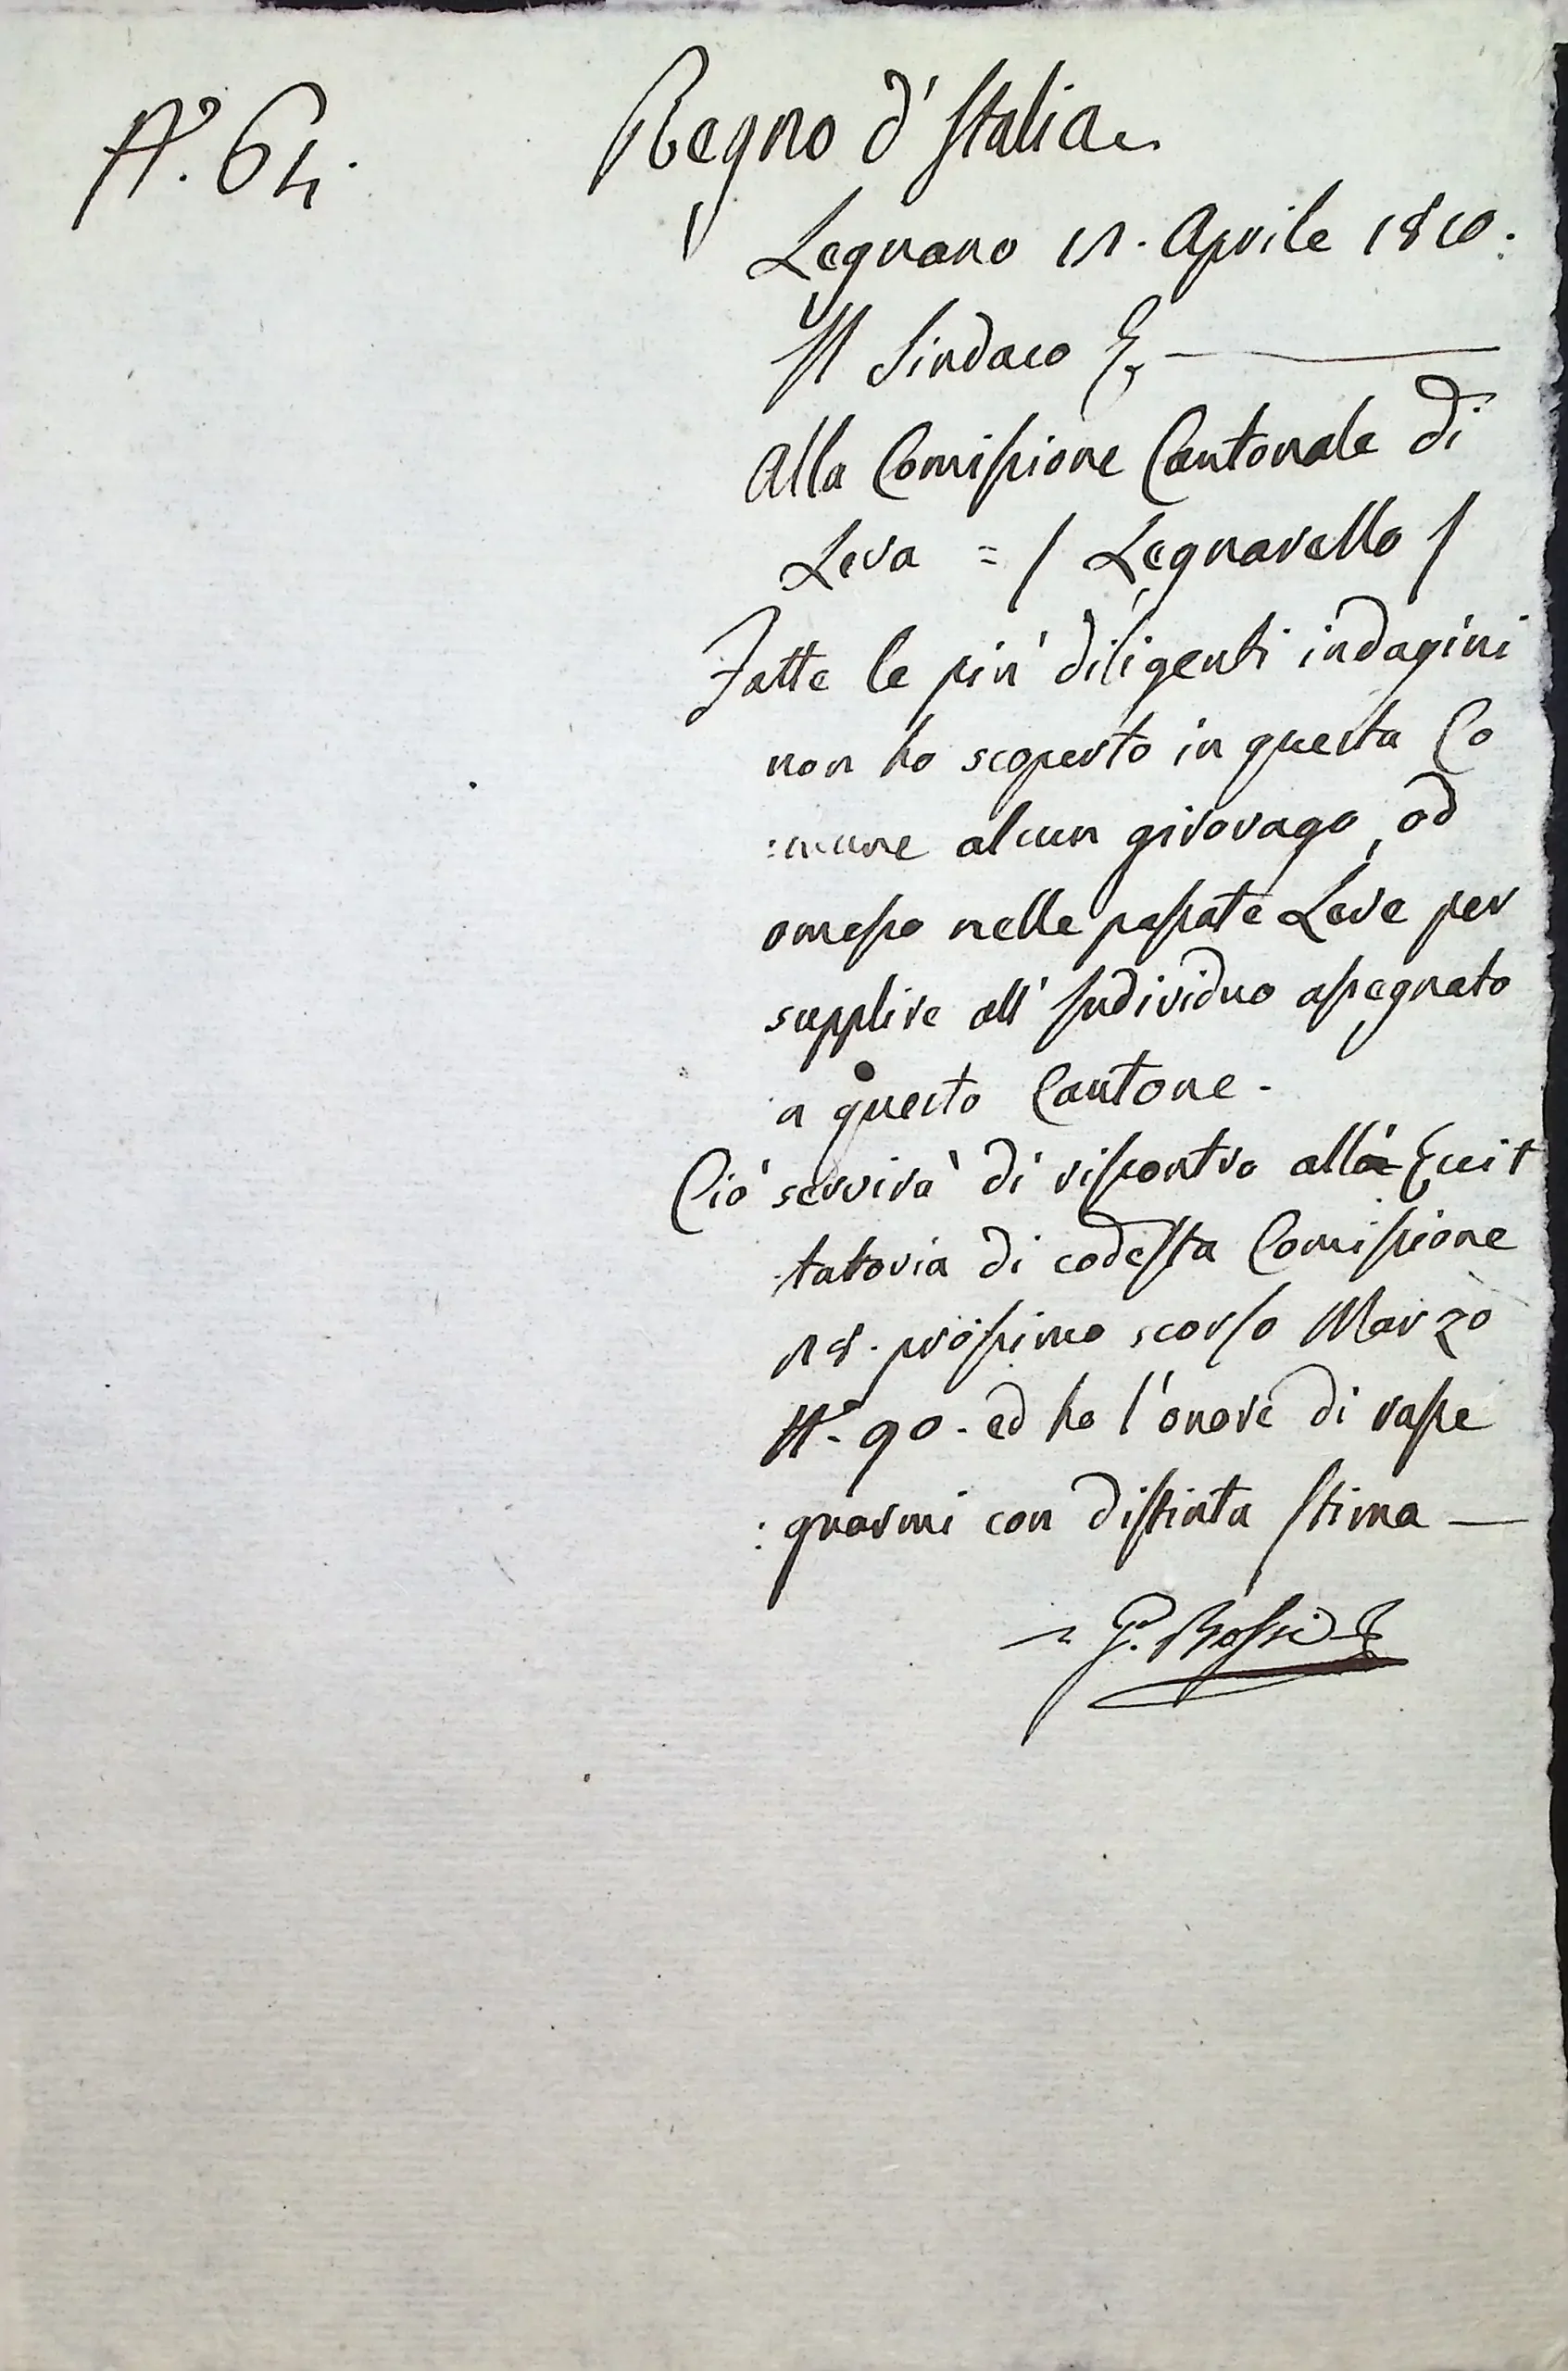 N.° 64.
Regno d'Italia
Legnano 12. Aprile 1810.
Il Sindaco
Alla Comissione Cantonale di
Leva = / Legnarello /
Fatte le più diligenti indagini
non ho scoperto in questa Co
:mune alcun girovago, od
omesso nelle passate Leve per
supplire all' Individuo assegnato
a questo Cantone.
Ciò servirà di riscontro alla Eccit
tatoria di codesta Comissione
28. prossimo scorso Marzo
N.° 90. ed ho l'onore di rasse
:gnarmi con distinta stima —
G. Bossi